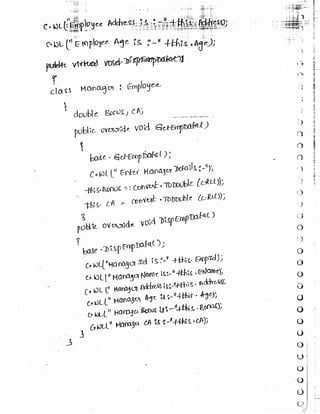 C.WL("Employee Address is :-" +this.Address);
C.WL("Employee Age is :-" +this.Age);
}
class Manager : Employee
{
double Bonus, CA;
public override void GetEmpData()
{
base.GetEmpData();
C.WL("Enter Manager Details:-");
this.Bonus = Convert.ToDouble(C.RL());
this.CA = Convert.ToDouble(C.RL());
}
public override void DispEmpData()
{
base.DispEmpData();
C.WL("Manager Id is:-" +this.EmpId);
C.WL("Manager Name is:-"+this.EName);
C.WL("Manager Address is:-"+this.Address);
C.WL("Manager Age is:-"+this.Age);
C.WL("Manager Bonus is:-"+this.Bonus);
C.WL("Manager CA is :-"+this.CA);
}
}